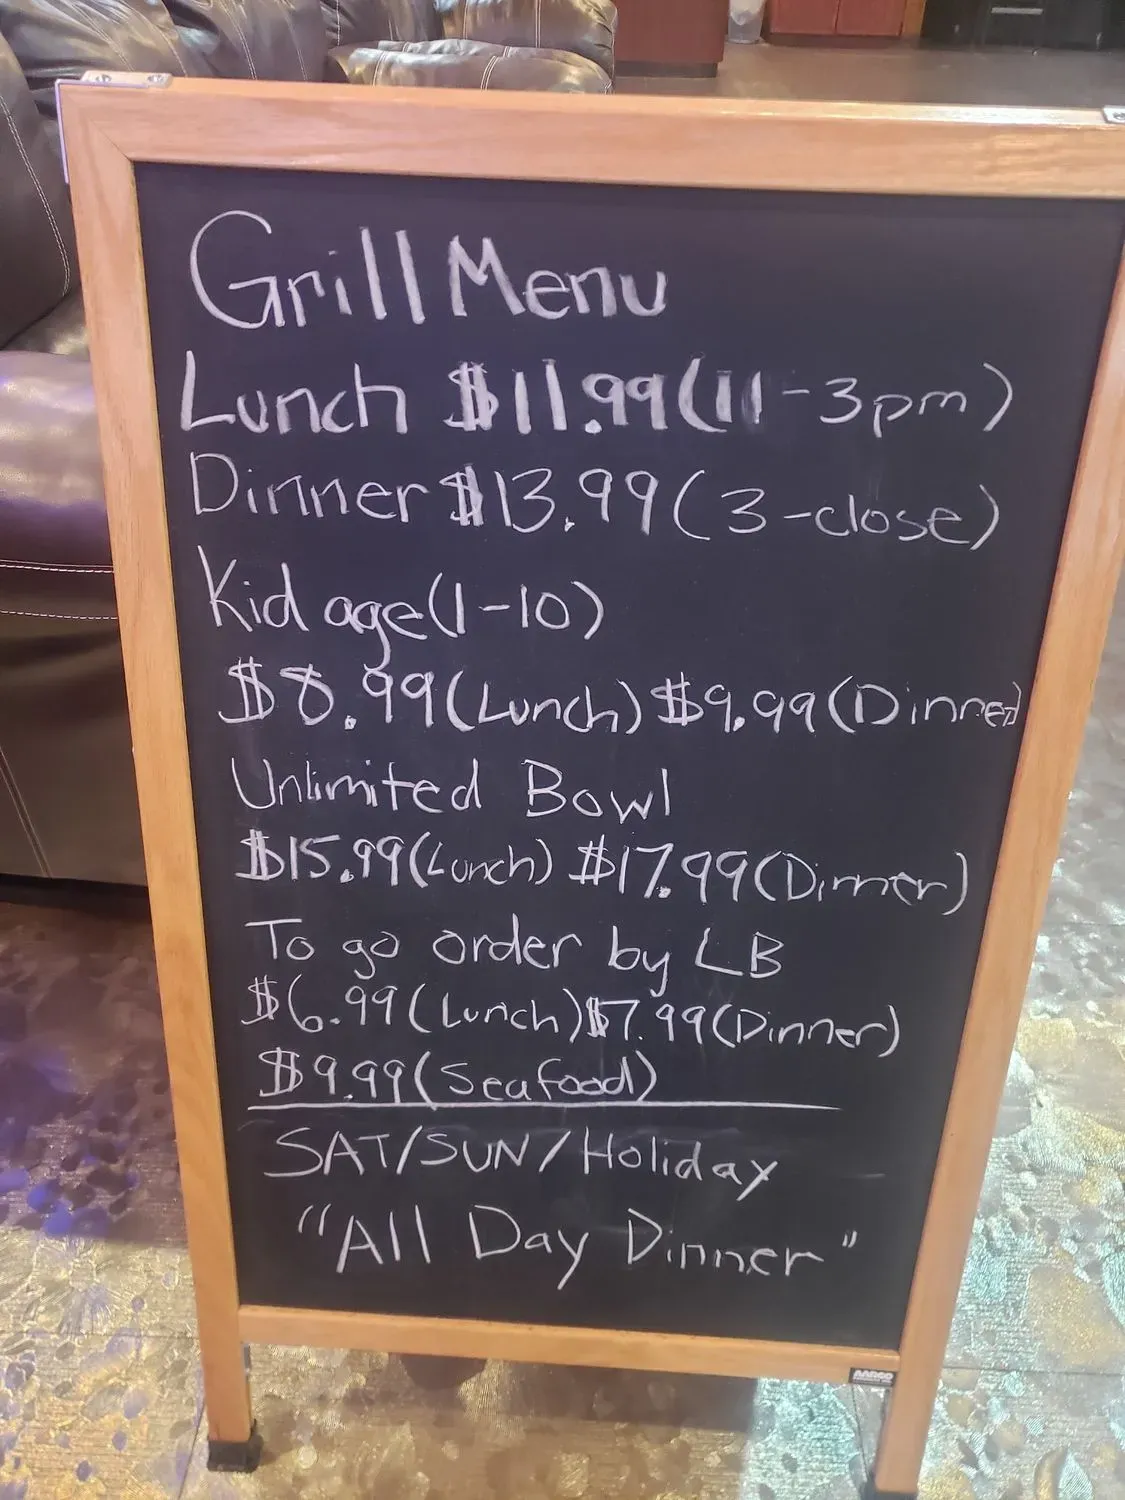 Grill Menu
Lunch $11.99(11-3pm)
Dinner $13.99(3-close)
Kid age(1-10)
$8.99(Lunch) $9.99(Dinner)
Unlimited Bowl
$15.99(Lunch) $17.99(Dinner)
To go order by LB
$6.99(Lunch) $7.99(Dinner)
$9.99(Seafood)
SAT/SUN/Holiday
"All Day Dinner"
AARCO